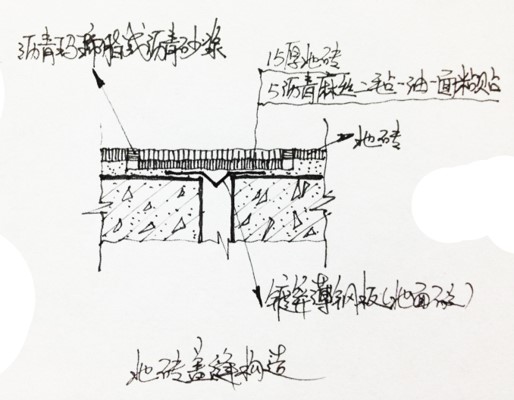 沥青玛琋脂或沥青砂浆
15厚地砖
5沥青麻丝二毡一油一面粘贴
地砖
镀锌薄钢板(地面砖)
地砖盖缝构造